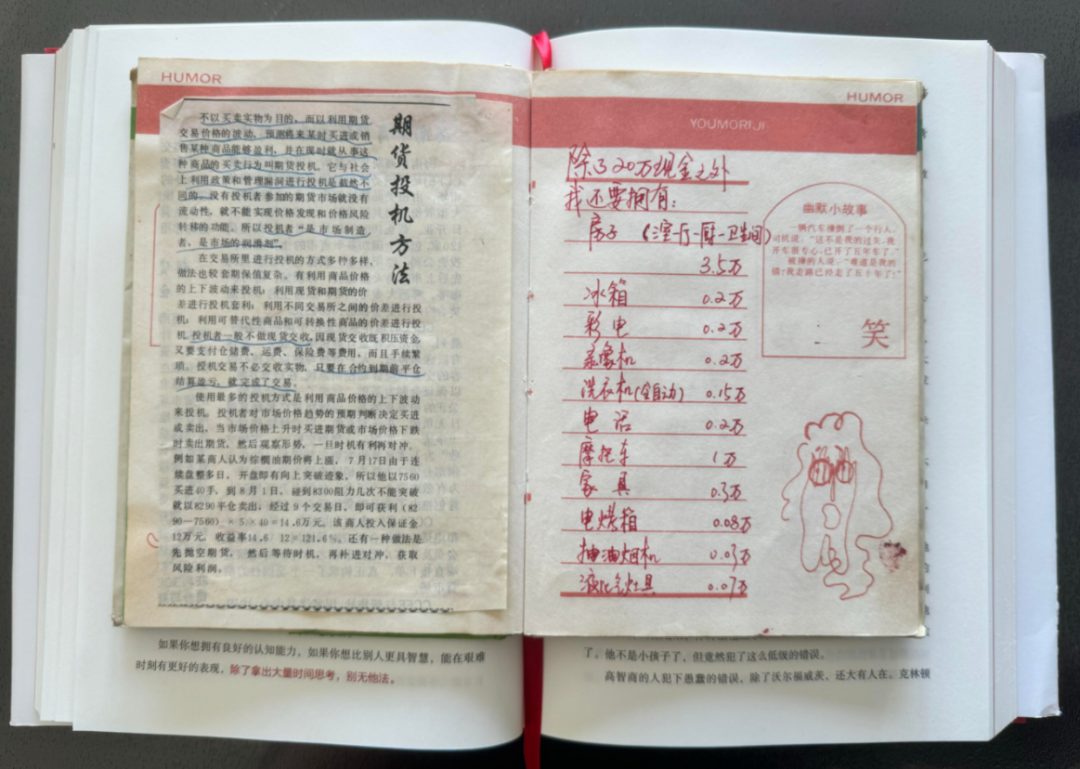 HUMOR
期货投机方法
不以买卖实物为目的，而以利用期货
交易价格的波动，预测将来某时买进或销
售某种商品能够盈利，并在现时就从事这
种商品的买卖行为叫期货投机。它与社会
上利用政策和管理漏洞进行投机是截然不
同的。没有投机者参加的期货市场就没有
流动性，就不能实现价格发现和价格风险
转移的功能。所以投机者“是市场制造
者，是市场的润滑剂”。
在交易所里进行投机的方式多种多样，
做法也较套期保值复杂。有利用商品价格
的上下波动来投机；利用现货和期货的价
差进行投机套利；利用不同交易所之间的价差进行投
机；利用可替代性商品和可转换性商品的价差进行投
机。投机者一般不做现货交收，因现货交收既积压资金，
又要支付仓储费、运费、保险费等费用，而且手续繁
琐。投机交易不必交收实物，只要在合约到期前平仓
结算盈亏，就完成了交易。
使用最多的投机方式是利用商品价格的上下波动
来投机。投机者对市场价格趋势的预期判断决定买进
或卖出，当市场价格上升时买进期货或市场价格下跌
时卖出期货，然后观察形势，一旦时机有利再对冲。
例如某商人认为棕榈油期价将上涨，7月17日由于连
续盘整多日，开盘即有向上突破迹象，所以他以7560
买进40手，到8月1日，碰到8300阻力几次不能突破
就以8290平仓卖出；经过9个交易日，即可获利（82
90—7560）×5×40=14.6万元。该商人投入保证金
12万元，收益率14.6 12=121.6%。还有一种做法是
先抛空期货，然后等待时机，再补进对冲，获取
风险利润。
HUMOR
YOUMORIJI
除了20万现金之外
我还要拥有：
房子（三室一厅一厨一卫生间）
3.5万
冰箱 0.2万
彩电 0.2万
录像机 0.2万
洗衣机（全自动） 0.15万
电话 0.2万
摩托车 1万
家具 0.3万
电烤箱 0.08万
抽油烟机 0.03万
液化气灶具 0.07万
幽默小故事
一辆汽车撞倒了一个行人。
司机说：“这不是我的过失，我
开车很专心，已开了五年车了。”
被撞的人说：“难道是我的
错？我走路已经走了五十年了！”
笑
如果你想拥有良好的认知能力，如果你想比别人更具智慧，能在艰难
时刻有更好的表现，除了拿出大量时间思考，别无他法。
了。他不是小孩子了，但竟然犯了这么低级的错误。
高智商的人犯下愚蠢的错误，除了沃尔福威茨，还大有人在。克林顿